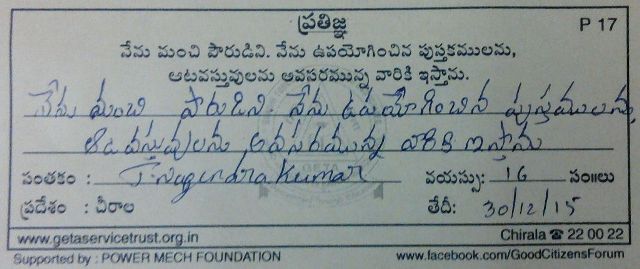 ప్రతిజ్ఞ
P 17
నేను మంచి పౌరుడిని. నేను ఉపయోగించిన పుస్తకములను,
ఆటవస్తువులను అవసరమున్న వారికి ఇస్తాను.
నేను మంచి పారుడిని నేను ఉపయోగించిన పుస్తకములను,
ఆటవస్తువులను అవసరమున్న వారికి ఇస్తాను
సంతకం : T. Nagendra Kumar వయస్సు: 16 సం॥లు
ప్రదేశం : చీరాల తేదీ: 30/12/15
www.getaservicetrust.org.in Chirala ☎ 22 00 22
Supported by : POWER MECH FOUNDATION www.facebook.com/GoodCitizensForum